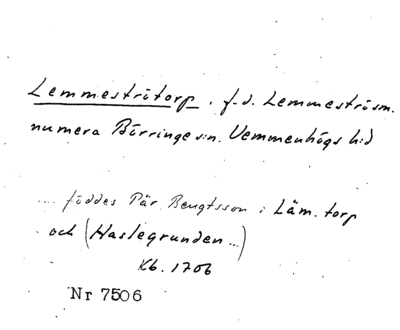 Lemmeströtorp, f.d. Lemmeströsn.
numera Börringe sn. Vemmenhögs hd
.... föddes Pär Bengtsson i Läm. torp
och (Haslegrunden...)
Kb. 1706
Nr 7506